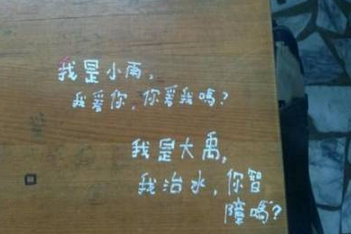 我是小雨，
我爱你，你爱我嗎？
我是大禹，
我治水，你智
障嗎？